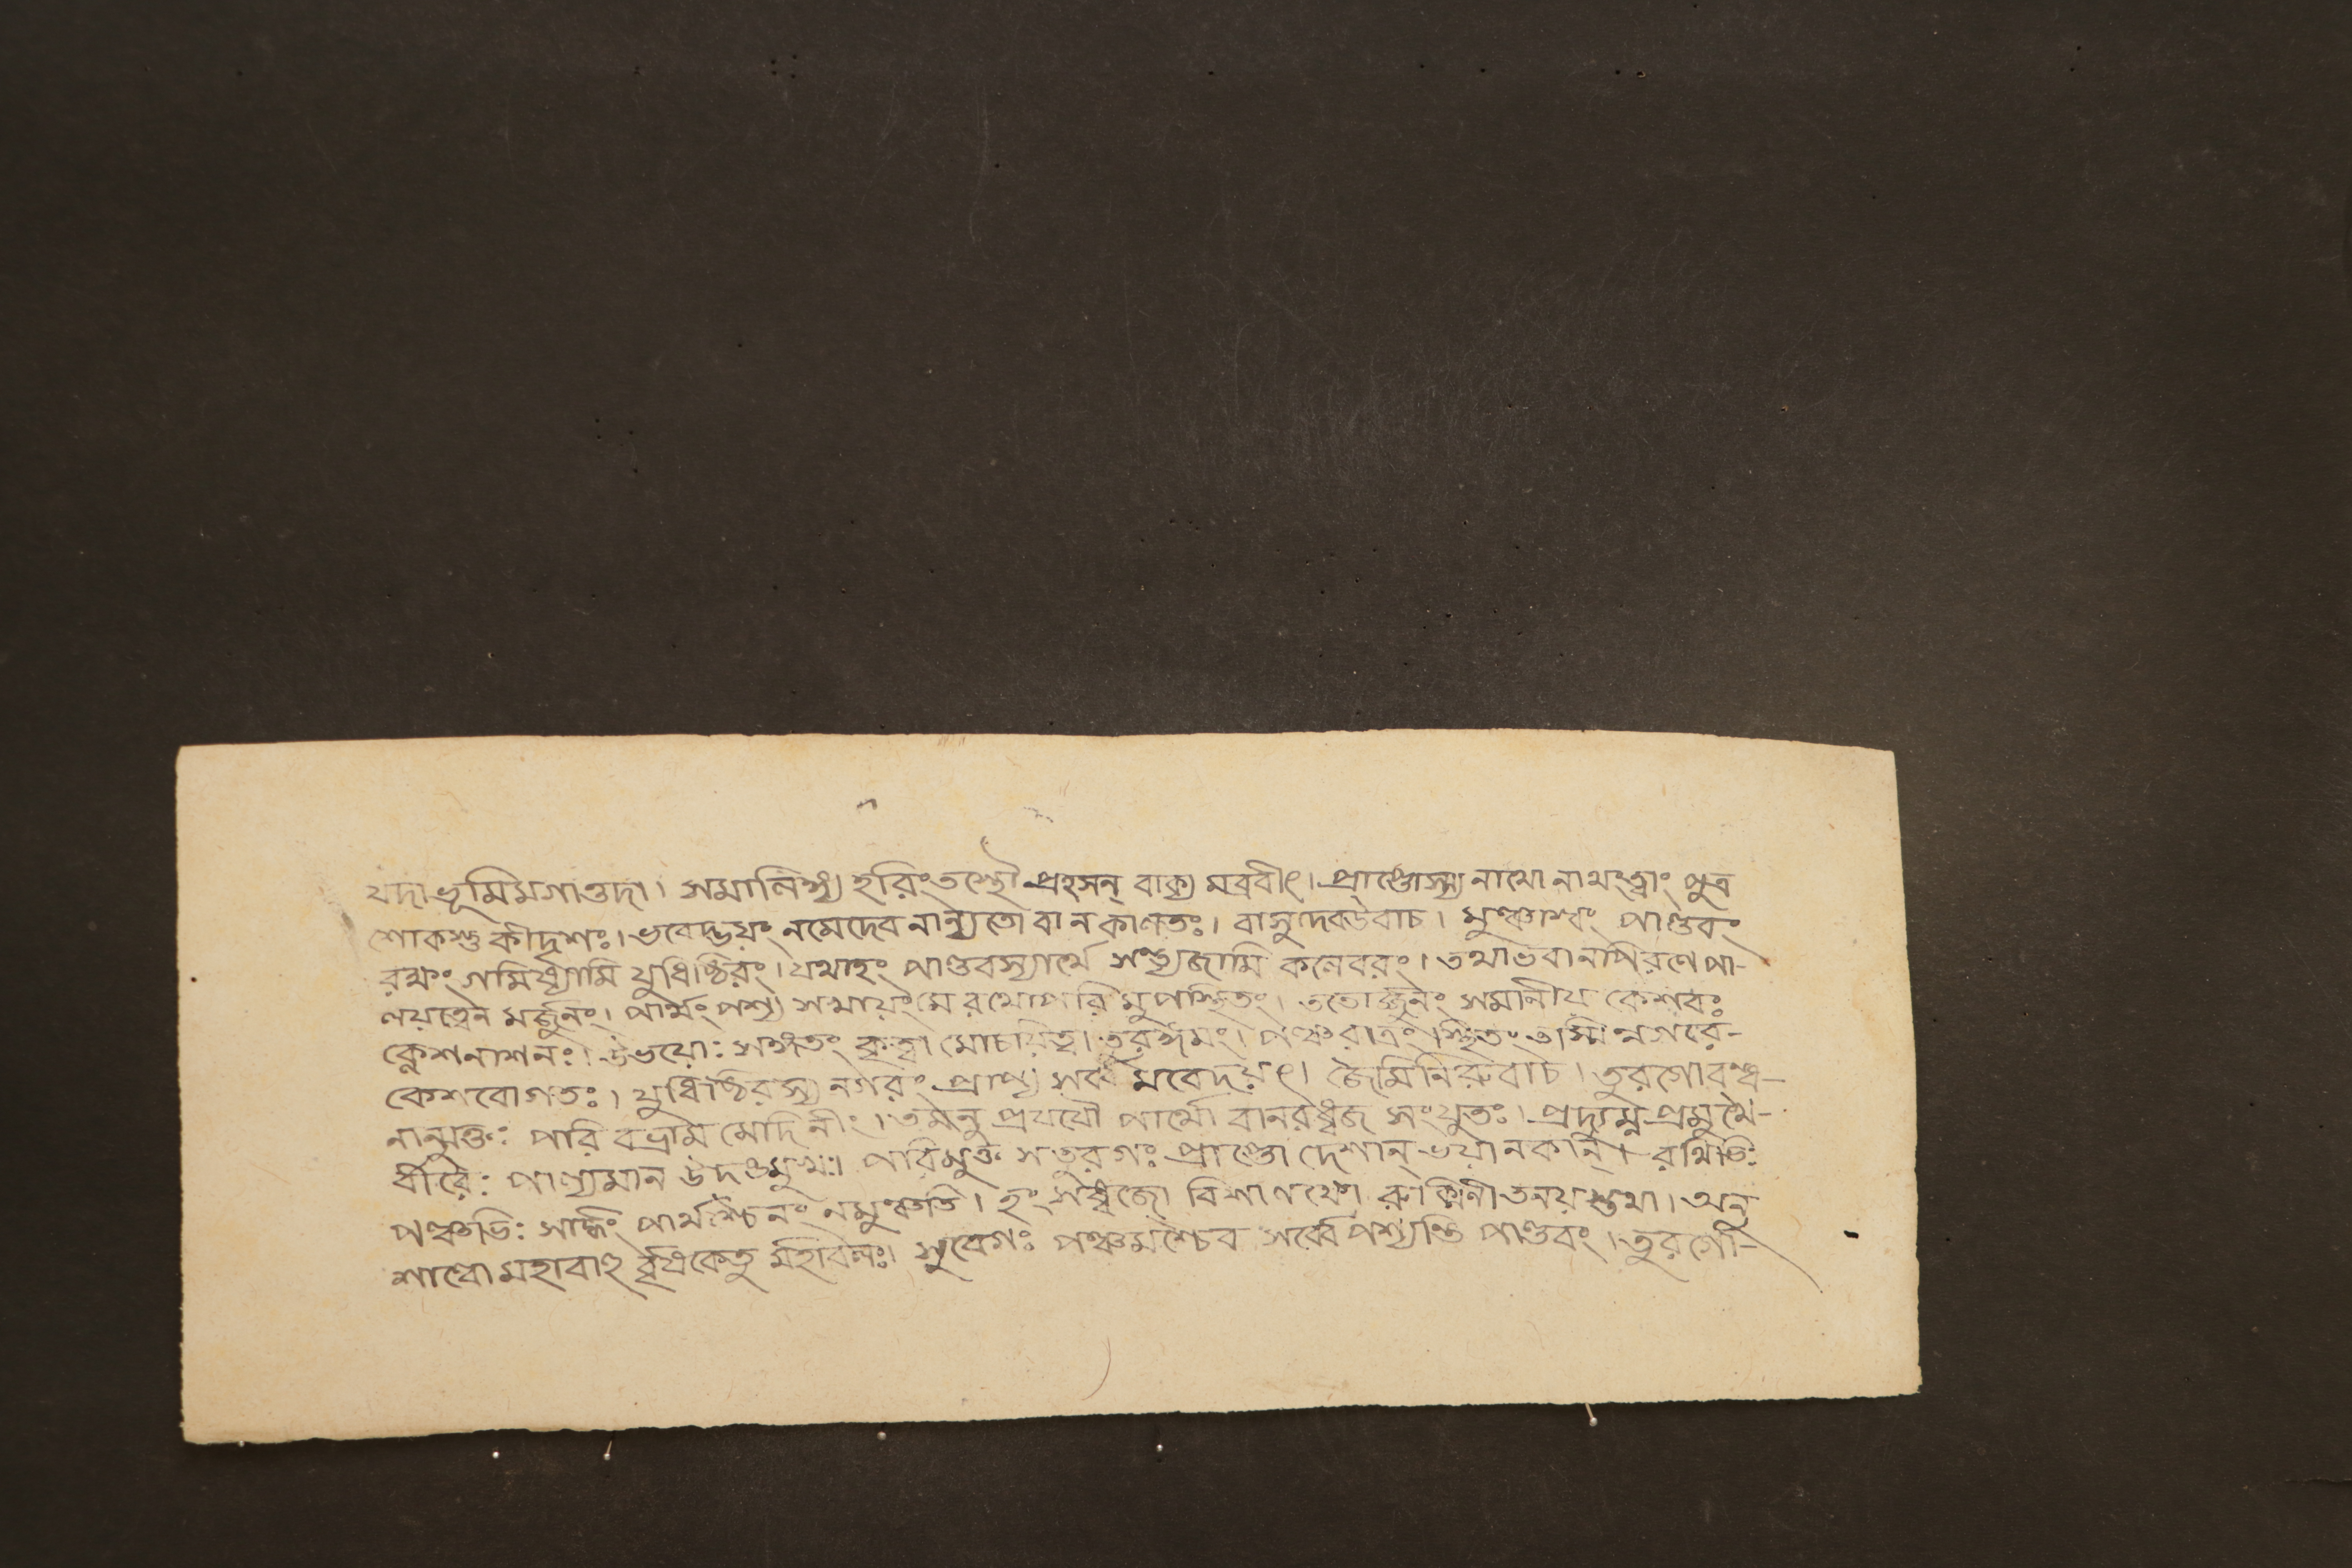 যদাভূমিমগাত্তদা। সমালিঙ্গ্য হরিংতস্থৌ প্রহসন্ বাক্য মব্রবীৎ। প্রাপ্তোস্য নাথো নাথংত্বাং পুত্র
শোকস্তু কীদৃশঃ। ভবেদ্ভয়ং নমেদেব নান্যতো বা ন কালতঃ। বাসুদেবউবাচ। মুঞ্চাশ্বং পাণ্ডবং
রক্ষং গমিষ্যামি যুধিষ্ঠিরং। যথাহং পাণ্ডবস্যার্থে সন্ত্যজামি কলেবরং। তথাভবানপিরণে পা-
লয়ত্বেন মর্জ্জুনং। পার্থং পশ্য সখায়ং মে রথোপরি মুপস্থিতং। ততোর্জ্জুনং সমানীয় কেশবঃ
ক্লেশনাশনঃ। উভয়োঃ সঙ্গতং কৃত্বা মোচয়িত্বা তুরঙ্গমং। পঞ্চরাত্রং স্থিতং তস্মিন্নগরে-
কেশবোগতঃ। যুধিষ্ঠিরস্য নগরং প্রাপ্য সর্ব্ব মবেদয়ৎ। জৈমিনিরুবাচ। তুরগোবন্ধ-
নান্মুক্তঃ পরি বভ্রাম মেদিনীং। তমনু প্রযযৌ পার্থো বানরধ্বজ সংযুতঃ। প্রদ্যুম্ন প্রমুখৈ-
র্ব্বীরৈঃ পাল্যমান উদঙমুখঃ। পরিমুক্ত সতুরগঃ প্রাপ্তো দেশান্ ভয়ানকান্। রথিভিঃ
পঞ্চভিঃ সার্দ্ধং পার্থশ্চৈনং নমুঞ্চতি। হংসধ্বজো বিশালাক্ষো রুক্মিনীতনয়স্তথা। অনু
শাল্বো মহাবাহু র্বৃষকেতু র্মহাবলঃ। সুবেগঃ পঞ্চমশ্চৈব সর্ব্বেপশ্যন্তি পাণ্ডবং। তুরগো-